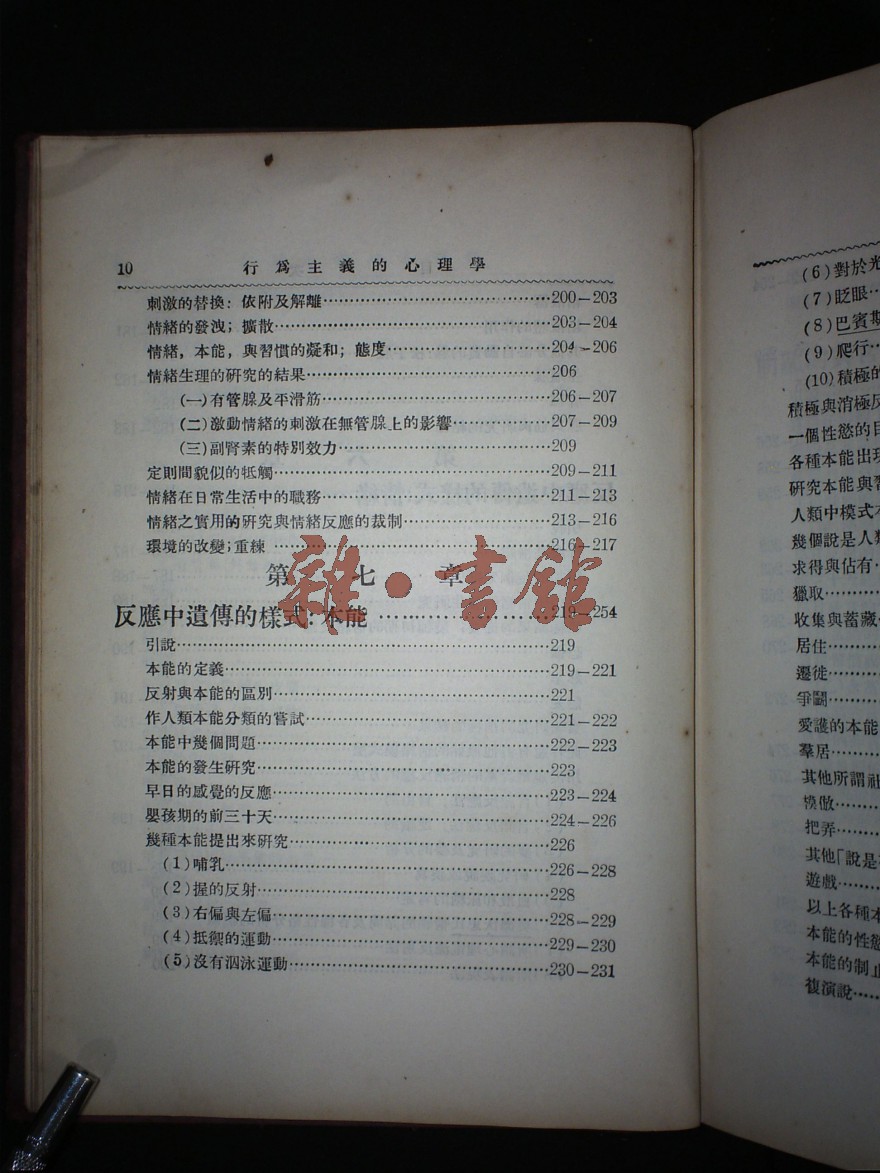 10 行爲主義的心理學
刺激的替換：依附及解離……200—203
情緒的發洩；擴散……203—204
情緒，本能，與習慣的凝和；態度……204—206
情緒生理的研究的結果……206
(一)有管腺及平滑筋……206—207
(二)激動情緒的刺激在無管腺上的影響……207—209
(三)副腎素的特別效力……209
定則間貌似的牴觸……209—211
情緒在日常生活中的職務……211—213
情緒之實用的研究與情緒反應的裁制……213—216
環境的改變；重棟……216—217
第七章
雜·書館
反應中遺傳的樣式：本能……219—254
引說……219
本能的定義……219—221
反射與本能的區別……221
作人類本能分類的嘗試……221—222
本能中幾個問題……222—223
本能的發生研究……223
早日的感覺的反應……223—224
嬰孩期的前三十天……224—226
幾種本能提出來研究……226
(1)哺乳……226—228
(2)握的反射……228
(3)右偏與左偏……228—229
(4)抵禦的運動……229—230
(5)沒有泅泳運動……230—231
(6)對於光
(7)眨眼…
(8)巴賓斯
(9)爬行…
(10)積極的
積極與消極反
一個性慾的目
各種本能出現
研究本能與習
人類中模式本
幾個說是人類
求得與佔有…
獵取………
收集與蓄藏…
居住………
遷徙………
爭鬭………
愛護的本能
羣居………
其他所謂社
模倣………
把弄………
其他「說是
遊戲………
以上各種本
本能的性慾
本能的制止
複演說……